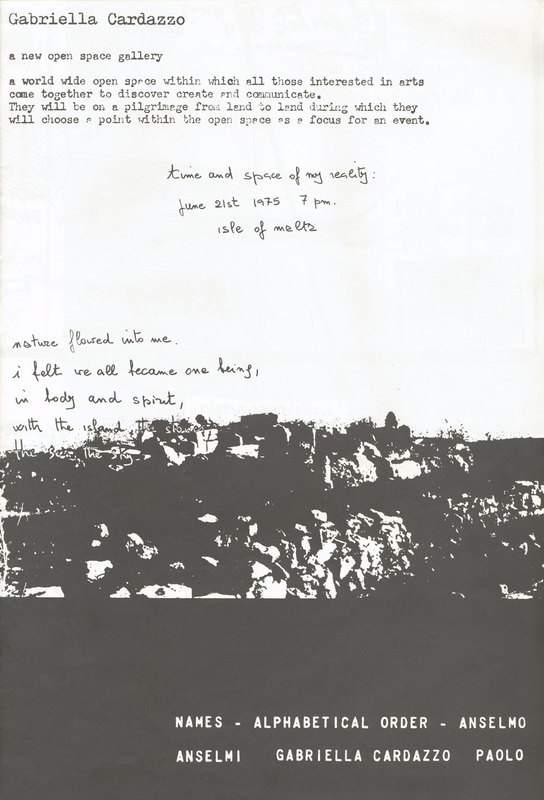 Gabriella Cardazzo
a new open space gallery
a world wide open space within which all those interested in arts
come together to discover create and communicate.
They will be on a pilgrimage from land to land during which they
will choose a point within the open space as a focus for an event.
time and space of my reality:
june 21st 1975 7 pm.
isle of malta
nature flowed into me.
i felt we all became one being,
in body and spirit,
with the island the stones
the sea, the sky
NAMES - ALPHABETICAL ORDER - ANSELMO
ANSELMI GABRIELLA CARDAZZO PAOLO